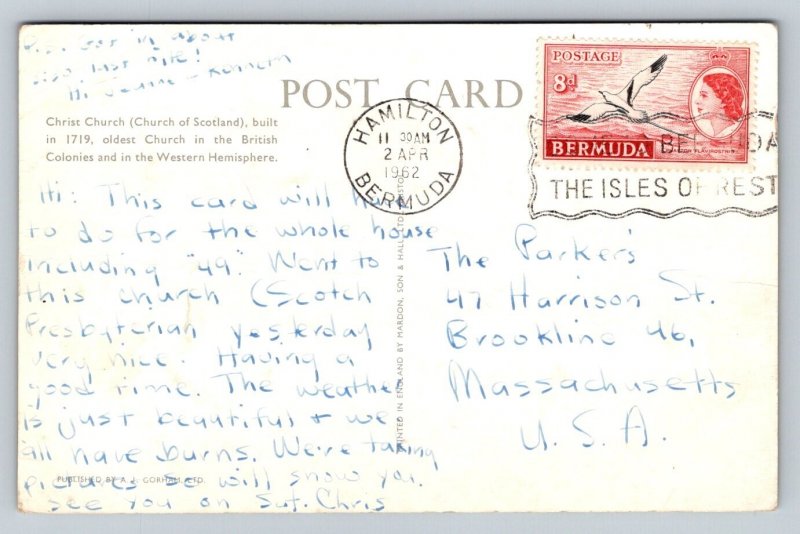 P.S. Got in about
last nite!
Hi Jeanne + Kenneth
POST CARD
Christ Church (Church of Scotland), built
in 1719, oldest Church in the British
Colonies and in the Western Hemisphere.
HAMILTON
11 30AM
2 APR
1962
BERMUDA
POSTAGE
8d
BERMUDA
BERMUDA
THE ISLES OF REST
Hi: This card will have
to do for the whole house
including "49". Went to
this church (Scotch
Presbyterian yesterday
very nice. Having a
good time. The weather
is just beautiful & we
all have burns. We're taking
pictures so will show you.
See you on Sat. Chris
The Parker's
47 Harrison St.
Brookline 46,
Massachusetts
U.S.A.
PRINTED IN ENGLAND BY MARDON, SON & HALL, LTD., BRISTOL
PUBLISHED BY A. J. GORHAM, LTD.